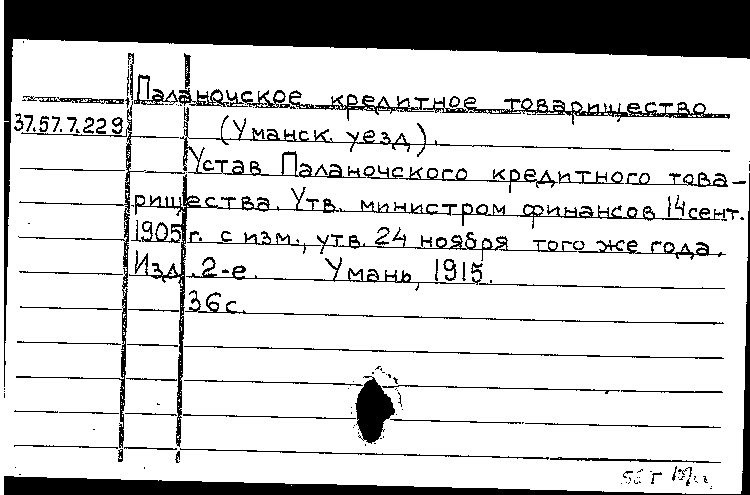 Паланочское кредитное товарищество
37.57.7.229 (Уманск. уезд).
Устав Паланочского кредитного това-
рищества. Утв. министром финансов 14 сент.
1905 г. с изм., утв. 24 ноября того же года.
Изд. 2-е. Умань, 1915.
36 с.
56 Т